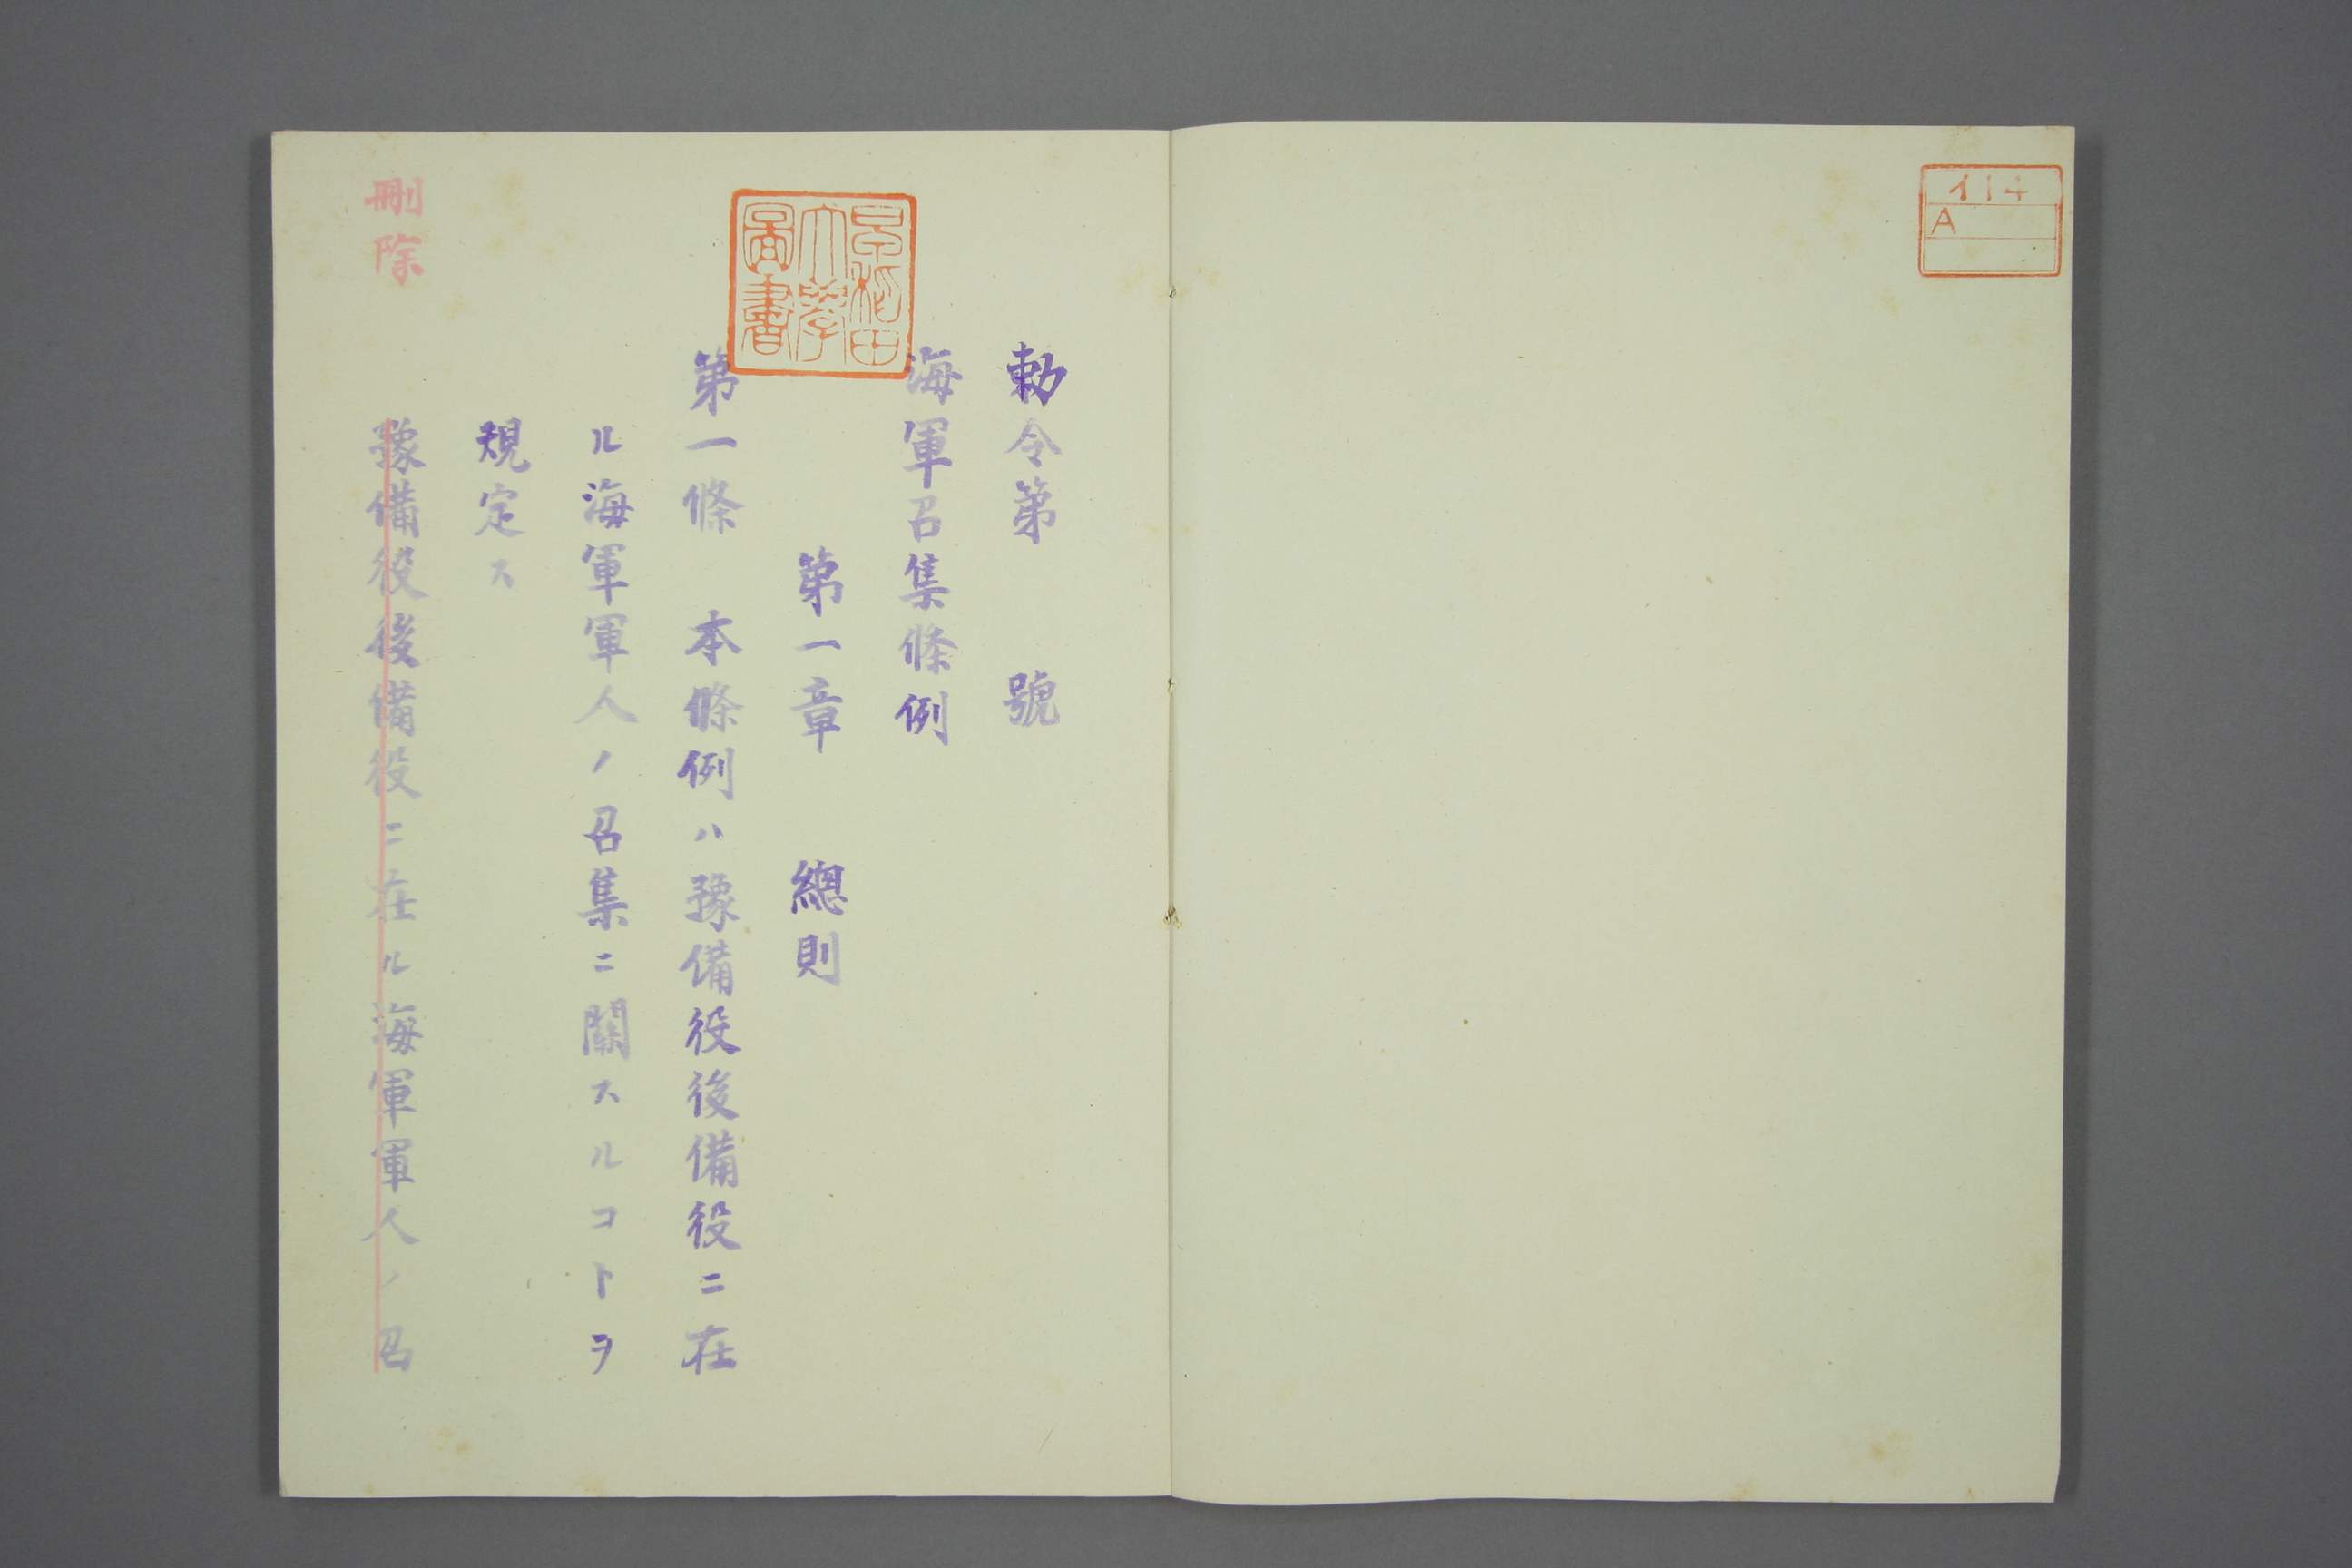 114
A
勅令第　號
海軍召集條例
第一章　總則
第一條　本條例ハ豫備役後備役ニ在
ル海軍軍人ノ召集ニ關スルコトヲ
規定ス
刪除
豫備役後備役ニ在ル海軍軍人ノ召
早稻田
大學
圖書